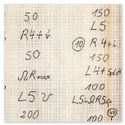 50
R4+V
50
ΩRmax
L5 V
200
150
L5
⑩ R4+i
150
L4+
100
L5=ΩR5
200